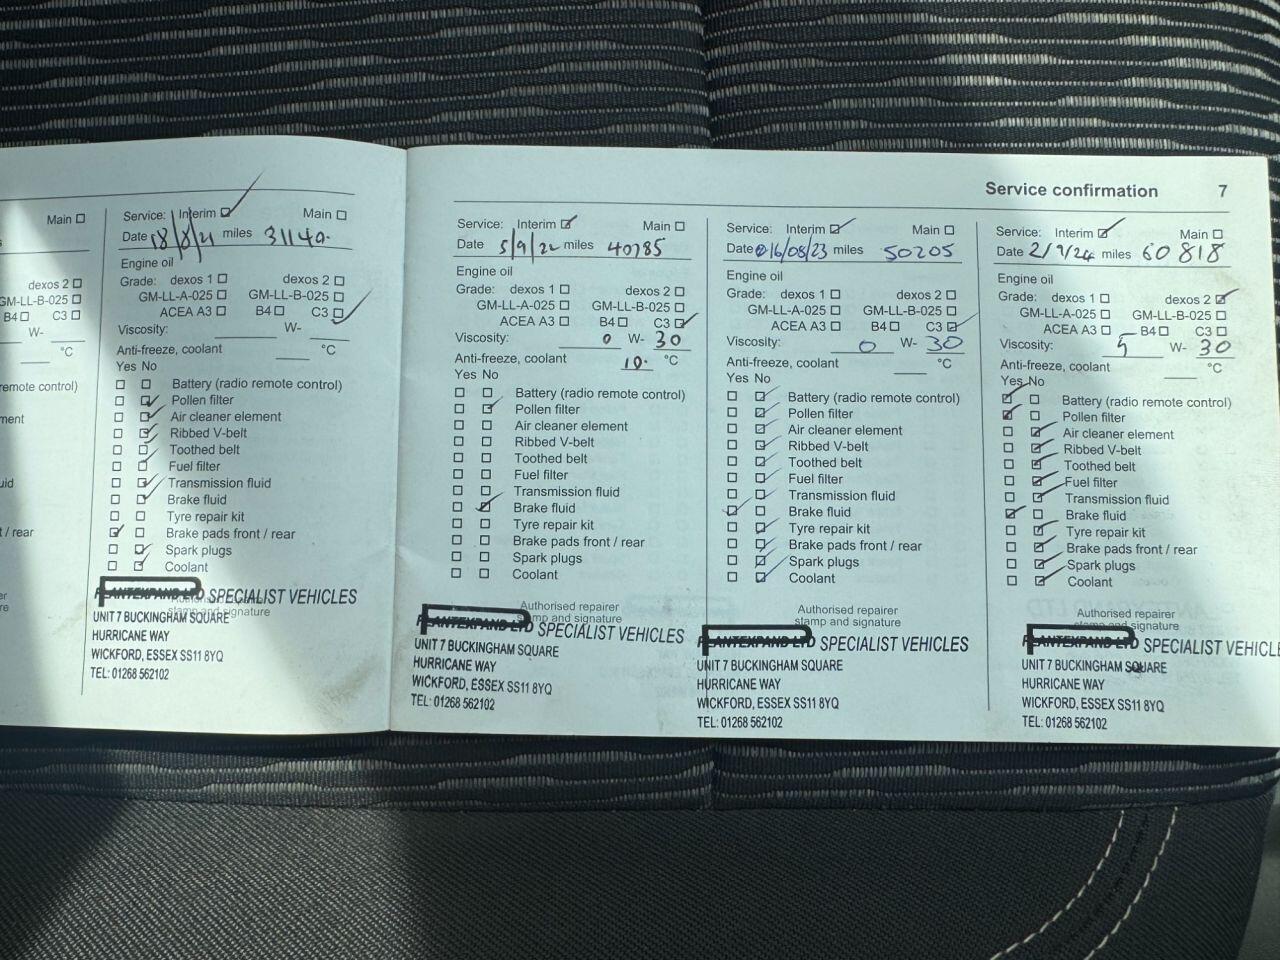 Main ☐
dexos 2 ☐
GM-LL-B-025 ☐
B4 ☐ C3 ☐
W-
°C
emote control)
ment
uid
t / rear
Service: Interim ☑ Main ☐
Date 18/8/21 miles 31140.
Engine oil
Grade: dexos 1 ☐ dexos 2 ☐
GM-LL-A-025 ☐ GM-LL-B-025 ☐
ACEA A3 ☐ B4 ☐ C3 ☑
Viscosity: W-
Anti-freeze, coolant °C
Yes No
Battery (radio remote control)
Pollen filter
Air cleaner element
Ribbed V-belt
Toothed belt
Fuel filter
Transmission fluid
Brake fluid
Tyre repair kit
Brake pads front / rear
Spark plugs
Coolant
PLANTEXPAND LTD SPECIALIST VEHICLES
stamp and signature
UNIT 7 BUCKINGHAM SQUARE
HURRICANE WAY
WICKFORD, ESSEX SS11 8YQ
TEL: 01268 562102
Service confirmation 7
Service: Interim ☑ Main ☐
Date 5/9/22 miles 40785
Engine oil
Grade: dexos 1 ☐ dexos 2 ☐
GM-LL-A-025 ☐ GM-LL-B-025 ☐
ACEA A3 ☐ B4 ☐ C3 ☑
Viscosity: 0 W- 30
Anti-freeze, coolant 10. °C
Yes No
Battery (radio remote control)
Pollen filter
Air cleaner element
Ribbed V-belt
Toothed belt
Fuel filter
Transmission fluid
Brake fluid
Tyre repair kit
Brake pads front / rear
Spark plugs
Coolant
Authorised repairer
stamp and signature
PLANTEXPAND LTD SPECIALIST VEHICLES
UNIT 7 BUCKINGHAM SQUARE
HURRICANE WAY
WICKFORD, ESSEX SS11 8YQ
TEL: 01268 562102
Service: Interim ☑ Main ☐
Date 16/08/23 miles 50205
Engine oil
Grade: dexos 1 ☐ dexos 2 ☐
GM-LL-A-025 ☐ GM-LL-B-025 ☐
ACEA A3 ☐ B4 ☐ C3 ☑
Viscosity: 0 W- 30
Anti-freeze, coolant °C
Yes No
Battery (radio remote control)
Pollen filter
Air cleaner element
Ribbed V-belt
Toothed belt
Fuel filter
Transmission fluid
Brake fluid
Tyre repair kit
Brake pads front / rear
Spark plugs
Coolant
Authorised repairer
stamp and signature
PLANTEXPAND LTD SPECIALIST VEHICLES
UNIT 7 BUCKINGHAM SQUARE
HURRICANE WAY
WICKFORD, ESSEX SS11 8YQ
TEL: 01268 562102
Service: Interim ☑ Main ☐
Date 2/9/24 miles 60818
Engine oil
Grade: dexos 1 ☐ dexos 2 ☑
GM-LL-A-025 ☐ GM-LL-B-025 ☐
ACEA A3 ☐ B4 ☐ C3 ☐
Viscosity: 5 W- 30
Anti-freeze, coolant °C
Yes No
Battery (radio remote control)
Pollen filter
Air cleaner element
Ribbed V-belt
Toothed belt
Fuel filter
Transmission fluid
Brake fluid
Tyre repair kit
Brake pads front / rear
Spark plugs
Coolant
Authorised repairer
stamp and signature
PLANTEXPAND LTD SPECIALIST VEHICLE
UNIT 7 BUCKINGHAM SQUARE
HURRICANE WAY
WICKFORD, ESSEX SS11 8YQ
TEL: 01268 562102